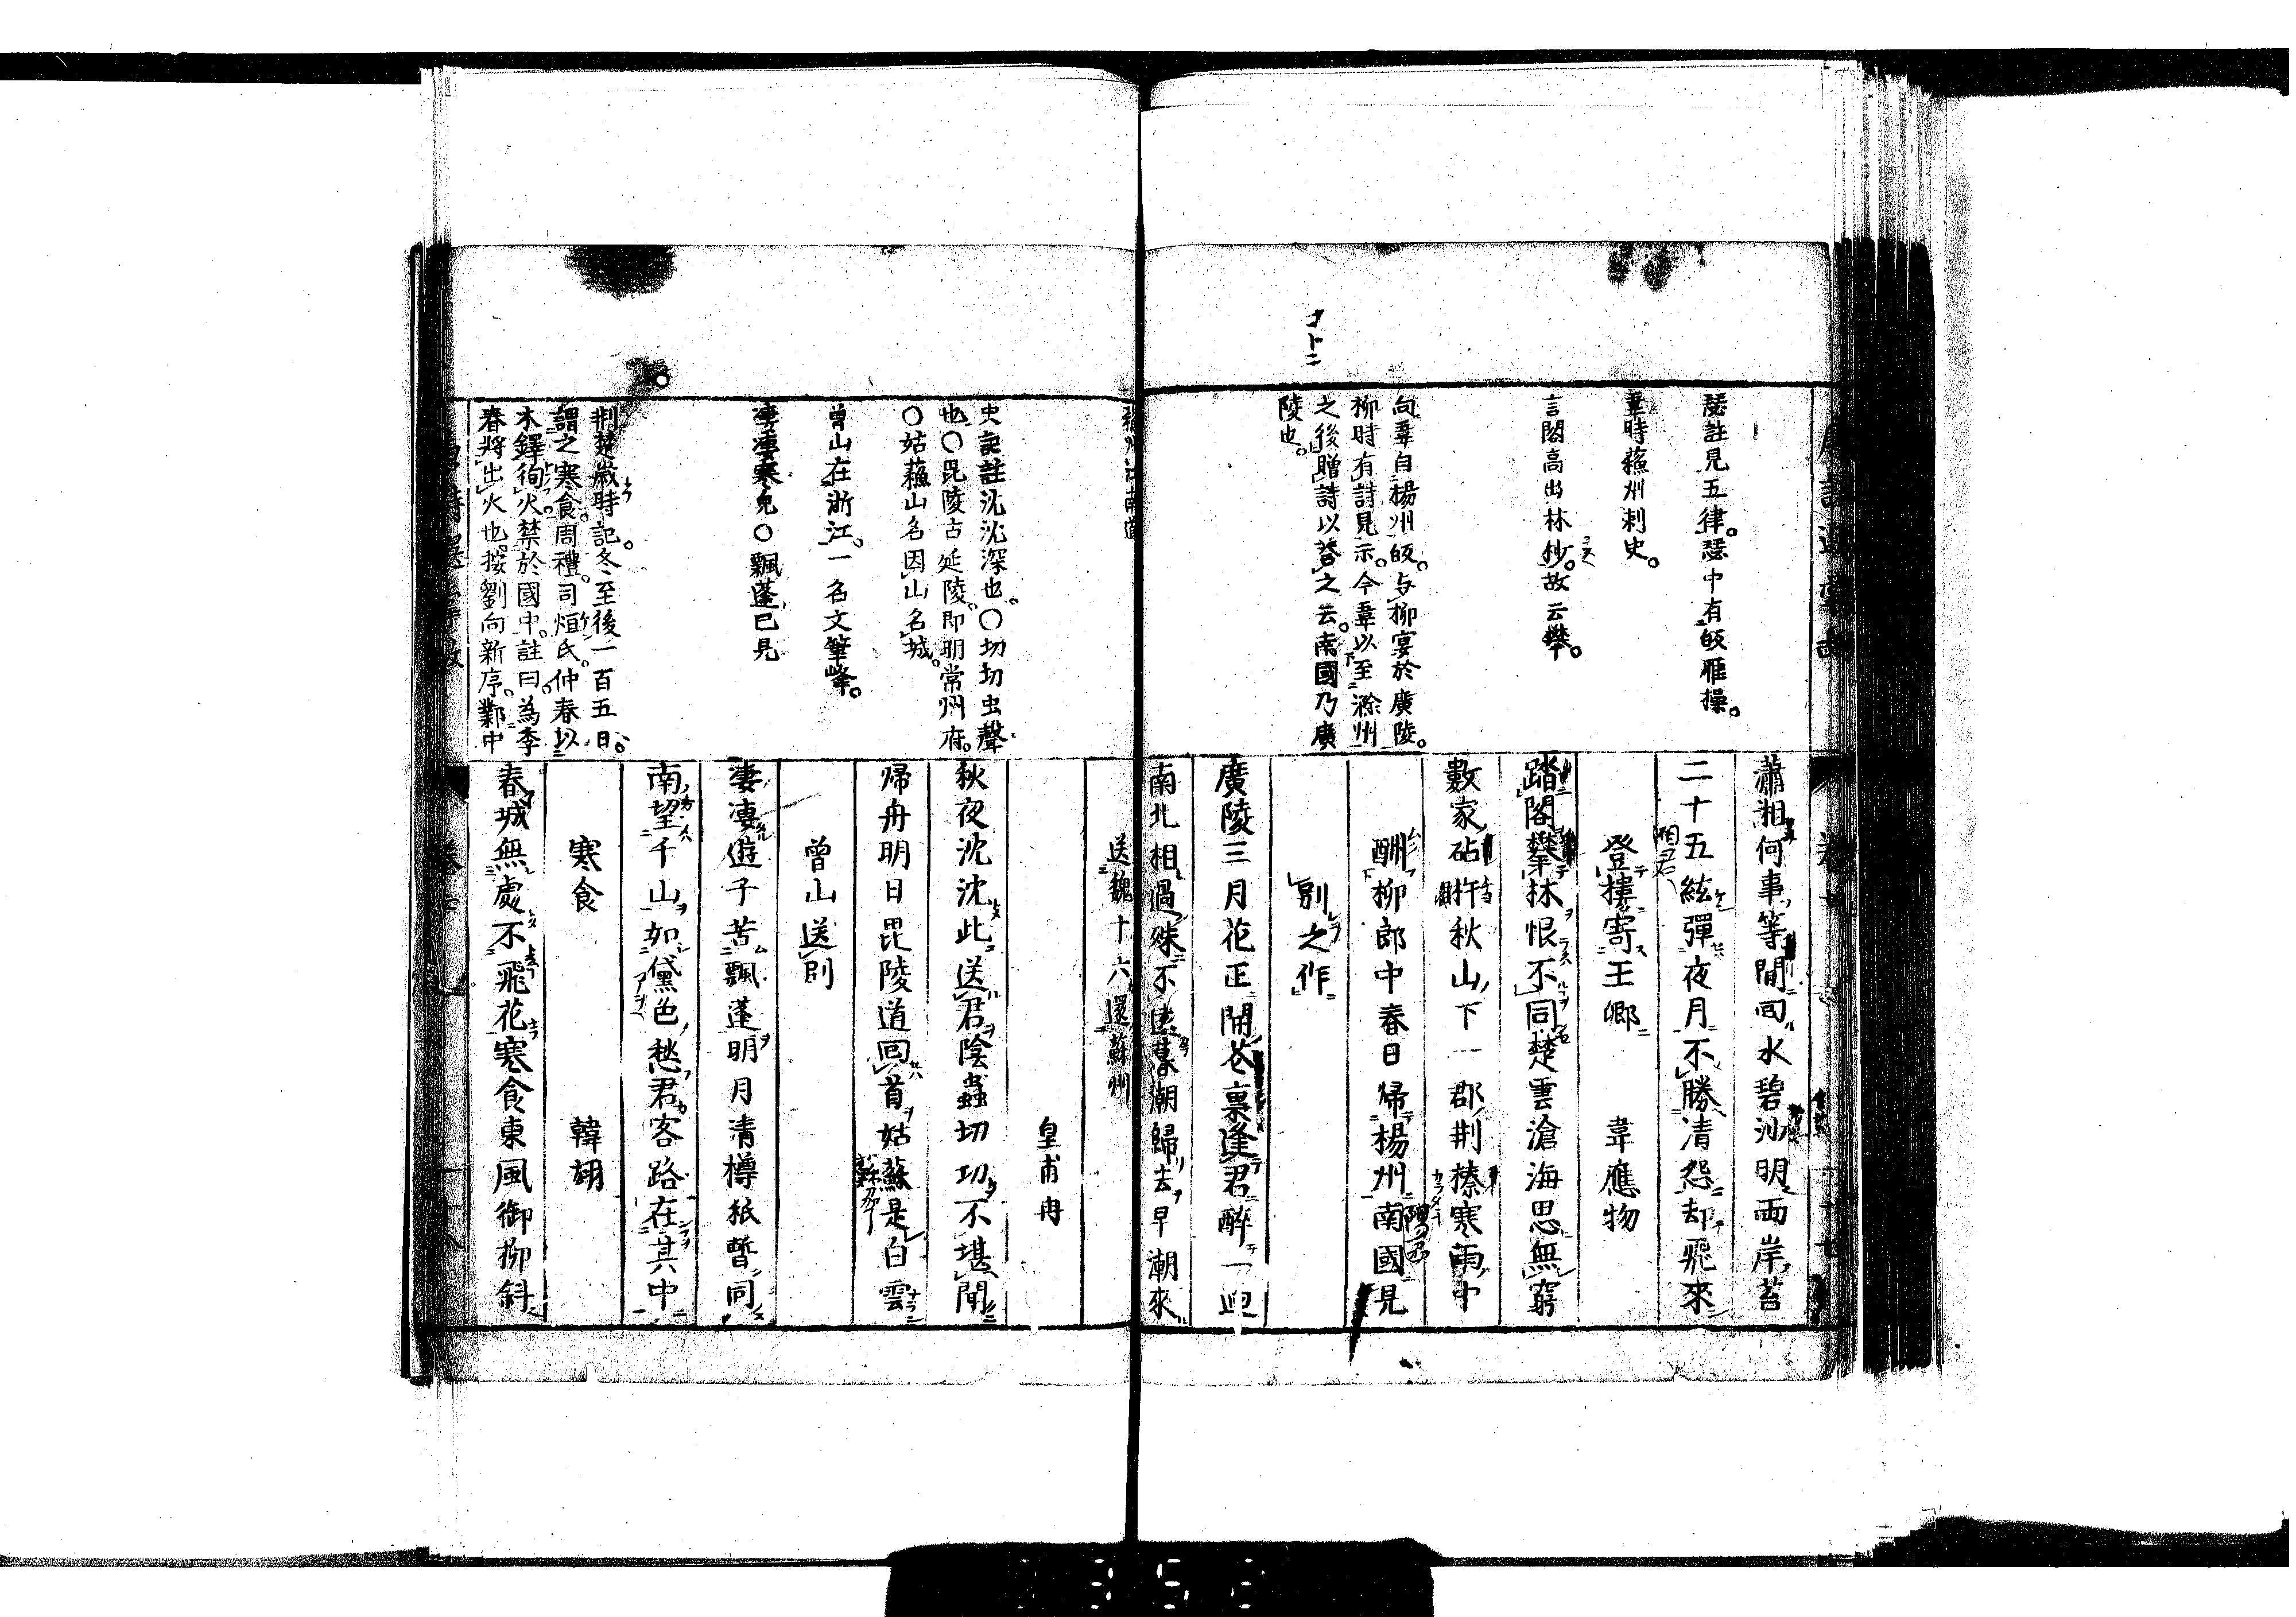 瑟註見五律。瑟中有皈雁操。
韋時蘓州刺史。
言閣高出林杪。故云攀。
向韋自楊州皈。与柳宴於廣陵。
柳時有詩見示。今韋以至滁州
之後贈詩以荅之云。南國乃廣
陵也。
瀟湘何事等閒回水碧沙明両岸苔
二十五絃彈夜月不勝清怨却飛來
登樓寄王卿　韋應物
踏閣攀林恨不同楚雲滄海思無窮
數家砧杵秋山下一郡荆榛寒雨中
酬柳郎中春日帰楊州南國見
別之作
廣陵三月花正開花裏逢君醉一迴
南北相過殊不遠暮潮歸去早潮來
蘓州江南道
史記註沈沈深也。〇切切虫聲
也〇毘陵古延陵。即明常州府。
〇姑蘓山名因山名城。
曾山在浙江。一名文筆峰。
凄凄寒皃〇飄蓬已見
荆楚歳時記。冬至後一百五日。
謂之寒食。周禮。司烜氏。仲春以
木鐸徇火禁於國中。註曰。為季
春將出火也。按劉向新序。鄴中
送魏十六還蘇州
皇甫冉
秋夜沈沈此送君陰蟲切切不堪聞
帰舟明日毘陵道回首姑蘇是白雲
曾山送別
凄凄遊子苦飄蓬明月清樽祇暫同
南望千山如黛色愁君客路在其中
寒食　韓翃
春城無處不飛花寒食東風御柳斜